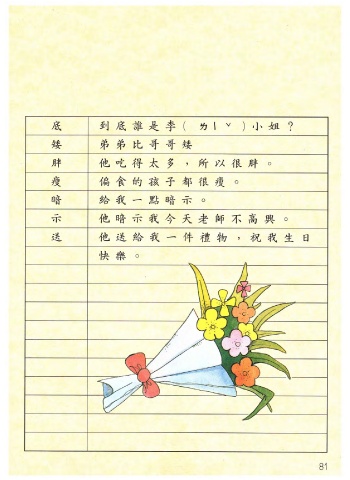 底 到底誰是李(ㄌㄧˇ)小姐？
矮 弟弟比哥哥矮
胖 他吃得太多，所以很胖。
瘦 偏食的孩子都很瘦。
暗 給我一點暗示。
示 他暗示我今天老師不高興。
送 他送給我一件禮物，祝我生日
快樂。
81